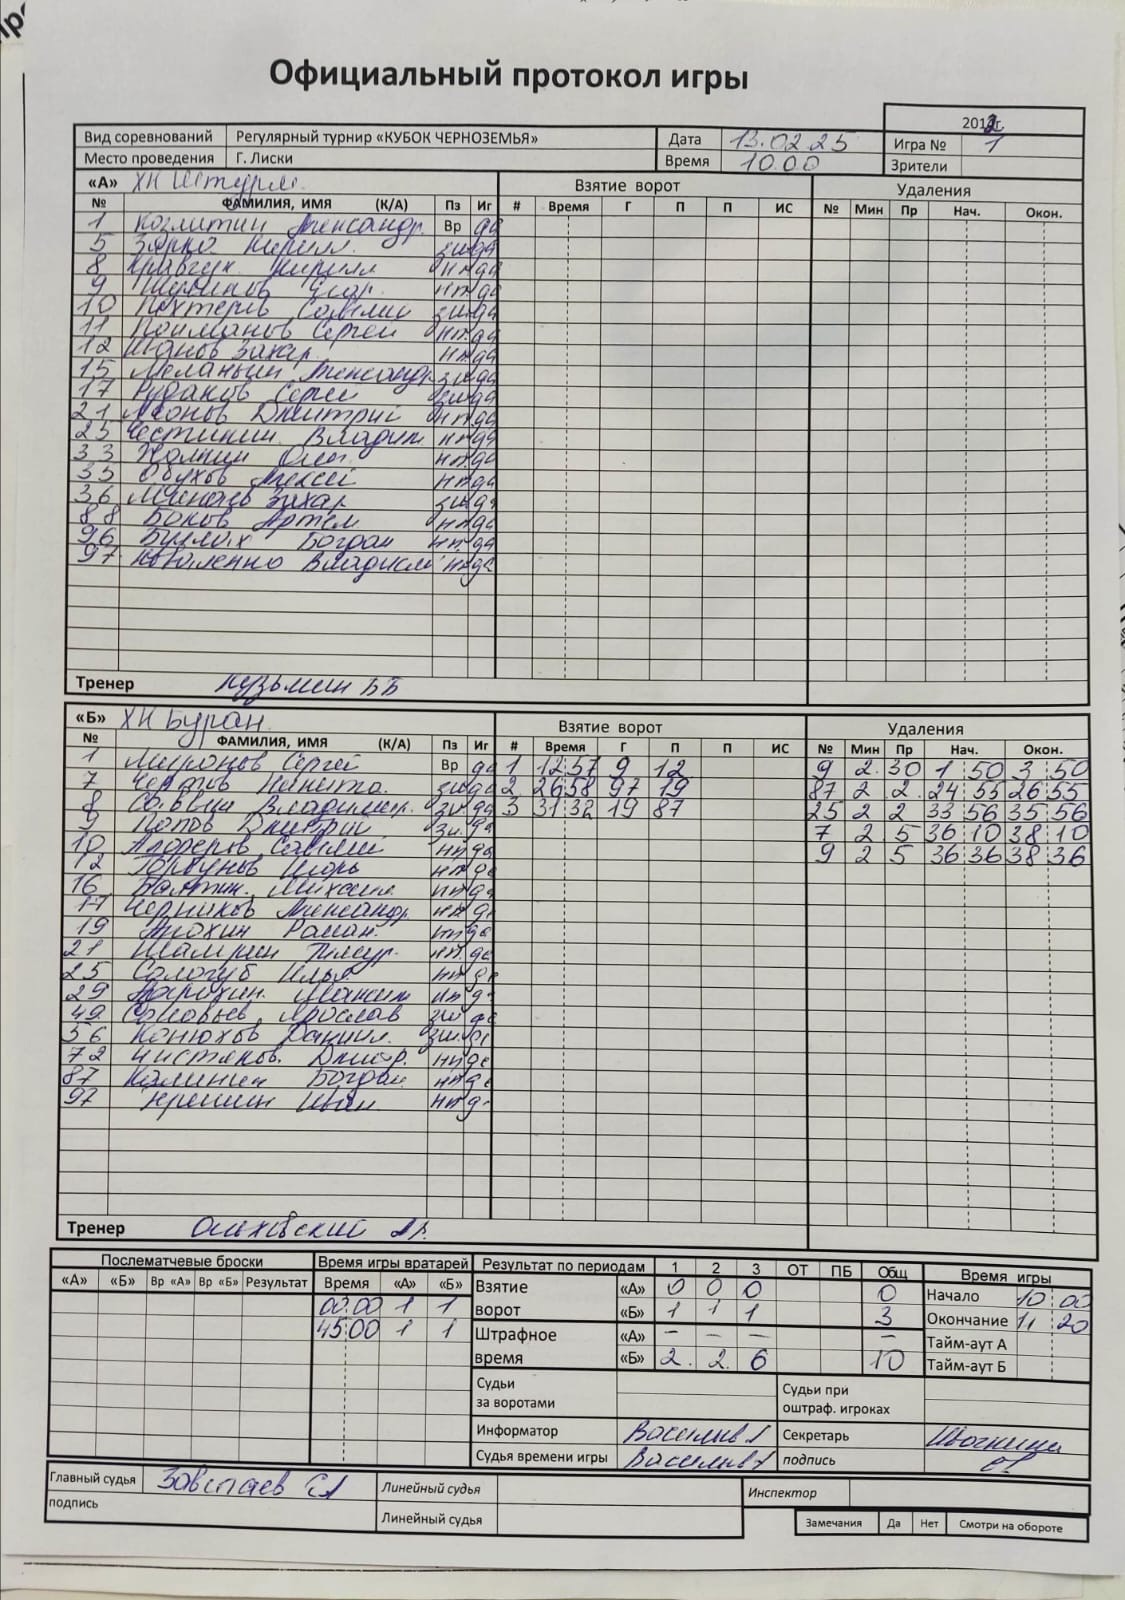 Официальный протокол игры
Вид соревнований Регулярный турнир «КУБОК ЧЕРНОЗЕМЬЯ» Дата 13.02.25 Игра № 1
Место проведения Г. Лиски Время 10.00 Зрители
«А» ХК Штурм Взятие ворот Удаления
№ ФАМИЛИЯ, ИМЯ (К/А) Пз Иг # Время Г П П ИС № Мин Пр Нач. Окон.
1 Александр Вр да
5 Кирилл да
8 Кравчук Кирилл нп да
9 Егор нп да
10 Пехтерев Савелий да
11 Сергей нп да
12 Захар нп да
15 Меланьин Александр да
17 Рудаков Сергей да
21 Леонов Дмитрий нп да
25 нп да
33 Олег нп да
35 Обухов Алексей нп да
36 Захар да
88 Боков Артем нп да
96 Богдан нп да
97 Коваленко Владислав нп да
Тренер Кузьмин
«Б» ХК Буран Взятие ворот Удаления
№ ФАМИЛИЯ, ИМЯ (К/А) Пз Иг # Время Г П П ИС № Мин Пр Нач. Окон.
1 Миронов Сергей Вр да 1 12 57 9 12 9 2 30 1 50 3 50
7 Чертов Никита да 2 26 58 97 19 87 2 2 24 55 26 55
8 Владимир да 3 31 32 19 87 25 2 2 33 56 35 56
9 Попов Дмитрий да 7 2 5 36 10 38 10
10 Алферов Савелий нп да 9 2 5 36 36 38 36
12 Горбунов Игорь нп да
16 Михаил нп да
17 Черников Александр нп да
19 Анохин Роман нп да
21 Шамрин Тимур нп да
25 Сологуб Илья нп да
29 Максим нп да
49 Соловьев Ярослав да
56 Конюхов Даниил
72 Чистяков Дмитр. нп да
87 Калинин Богдан нп да
97 Иван нп
Тренер Ольховский
Послематчевые броски Время игры вратарей Результат по периодам 1 2 3 ОТ ПБ Общ Время игры
«А» «Б» Вр «А» Вр «Б» Результат Время «А» «Б»
Взятие ворот «А» 0 0 0 0 Начало 10 00
00:00 1 1 «Б» 1 1 1 3 Окончание 11 20
45:00 1 1 Штрафное время «А» – – – – Тайм-аут А
«Б» 2 2 6 10 Тайм-аут Б
Судьи за воротами Судьи при оштраф. игроках
Информатор Секретарь
Судья времени игры подпись
Главный судья Линейный судья Инспектор
подпись Линейный судья Замечания Да Нет Смотри на обороте